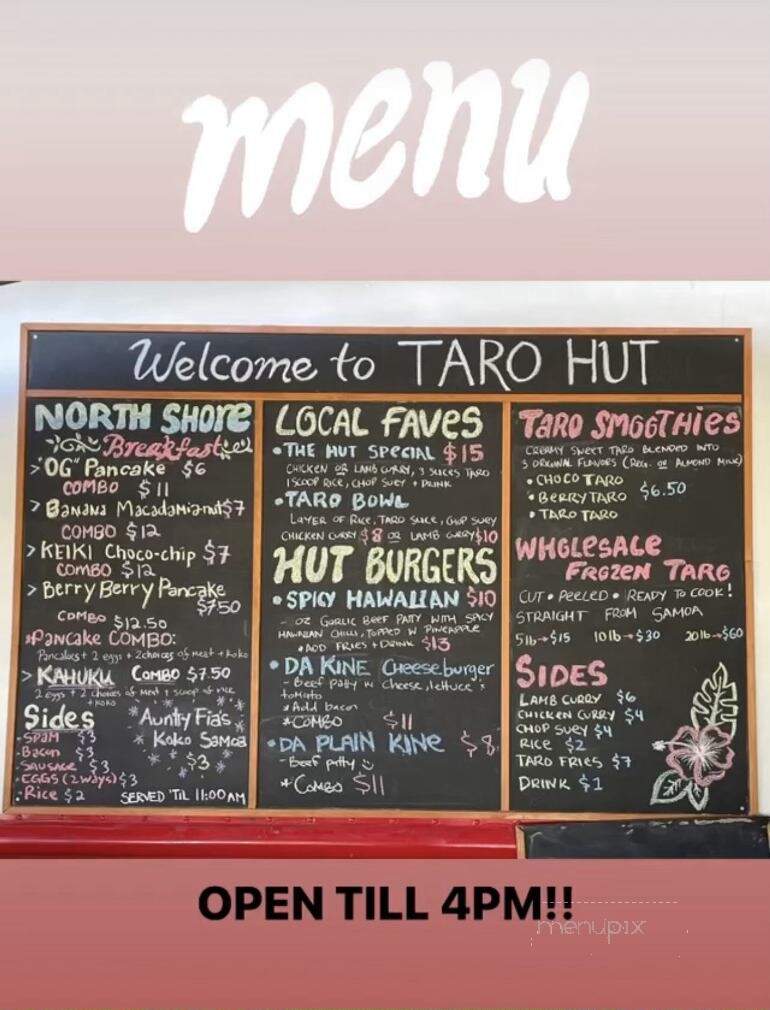 menu
Welcome to TARO HUT
NORTH SHORE
Breakfast
> "OG" Pancake $6
COMBO $11
> Banana Macadamianut $7
COMBO $12
> KEIKI Choco-chip $7
COMBO $12
> Berry Berry Pancake
$7.50
COMBO $12.50
*Pancake COMBO:
Pancakes + 2 eggs + 2 choices of meat + koko
> KAHUKU COMBO $7.50
2 eggs + 2 choices of meat 1 scoop of rice
+ koko
Sides
- SPAM $3
- Bacon $3
- SAUSAGE $3
- EGGS (2 ways) $3
- Rice $2
Aunty Fia's
Koko Samoa
$3
SERVED 'TIL 11:00AM
LOCAL FAVES
• THE HUT SPECIAL $15
CHICKEN OR LAMB CURRY, 3 SLICES TARO
1 SCOOP RICE, CHOP SUEY + DRINK
• TARO BOWL
LAYER OF RICE, TARO SLICE, CHOP SUEY
CHICKEN CURRY $8 OR LAMB CURRY $10
HUT BURGERS
• SPICY HAWAIIAN $10
- OZ GARLIC BEEF PATTY WITH SPICY
HAWAIIAN CHILI, TOPPED W PINEAPPLE
* ADD FRIES + DRINK $13
• DA KINE Cheeseburger
- Beef patty w cheese, lettuce +
tomato
* Add bacon
* COMBO $11
• DA PLAIN KINE $8
- Beef patty
* Combo $11
TARO SMOOTHIES
CREAMY SWEET TARO BLENDED INTO
3 ORIGINAL FLAVORS (REG. OR ALMOND MILK)
• CHOCO TARO
• BERRY TARO $6.50
• TARO TARO
WHOLESALE
FROZEN TARO
CUT • PEELED • READY TO COOK!
STRAIGHT FROM SAMOA
5lb → $15 10lb → $30 20lb → $60
SIDES
LAMB CURRY $6
CHICKEN CURRY $4
CHOP SUEY $4
RICE $2
TARO FRIES $7
DRINK $1
OPEN TILL 4PM!!
menupix